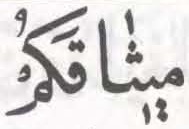 مِيثَٰاقَكُمْ